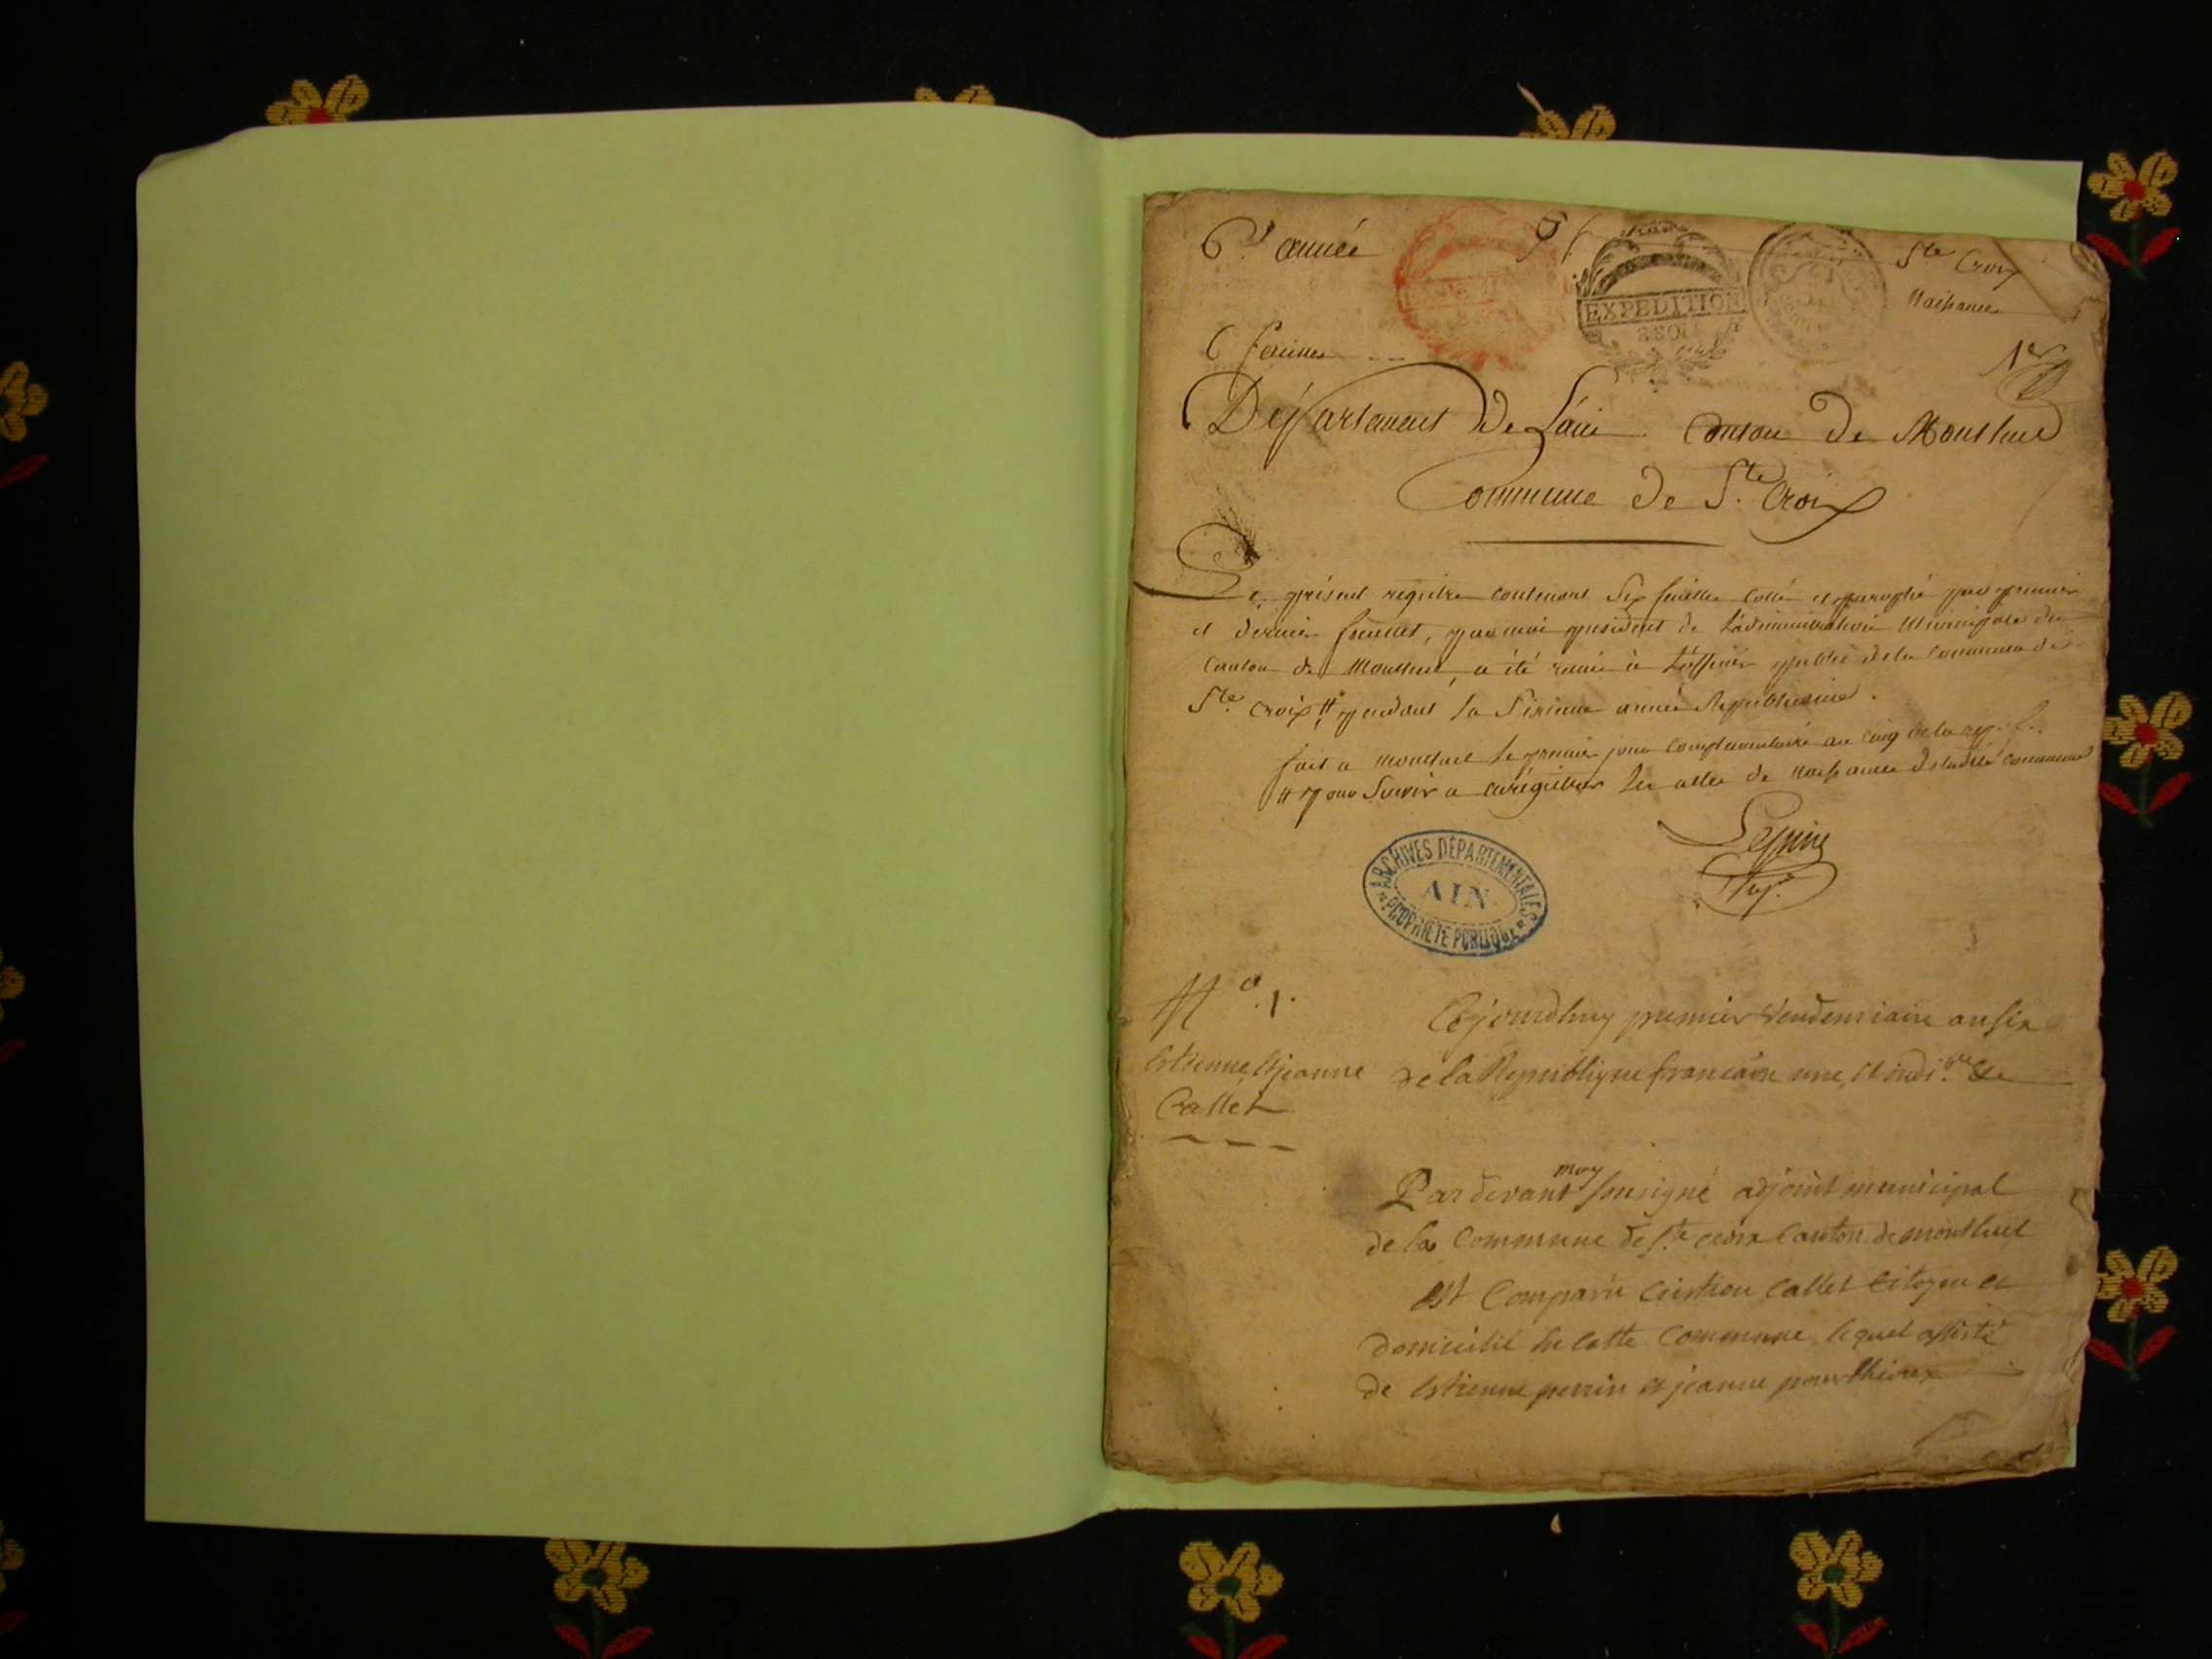 6.e année
Ste Croix
Naissances
EXPEDITION
6 feuilles
1er
Département De L'ain Canton De Montluel
Commune De Ste Croix
Le présent registre contenant Six feuilles Cotté et paraphé par premier
et dernier feuillet, par moi president de L'administration Municipale du
Canton de Montluel, a été remis à L'officier public de la Commune de
Ste Croix # pendant la Sixieme année Republicaine.
fait a Montluel le premier jour Complementaire an Cinq de la rep. f.
# pour Servir a enrégistrer Les actes de Naissances de ladite Commune
ARCHIVES DÉPARTEMENTALES
AIN
PROPRIÉTÉ PUBLIQUE
No. 1.
Estienne et jeanne
Callet
Cejourdhuy premier Vendemiaire an six
de la Republique francaise une, et indi.ble
Par devant moy sousigné adjoint municipal
de la Commune de Ste croix Canton de montluel
est Comparu Callet Citoyen et
domicilié en cette Commune, lequel assisté
de Estienne perrin et jeanne